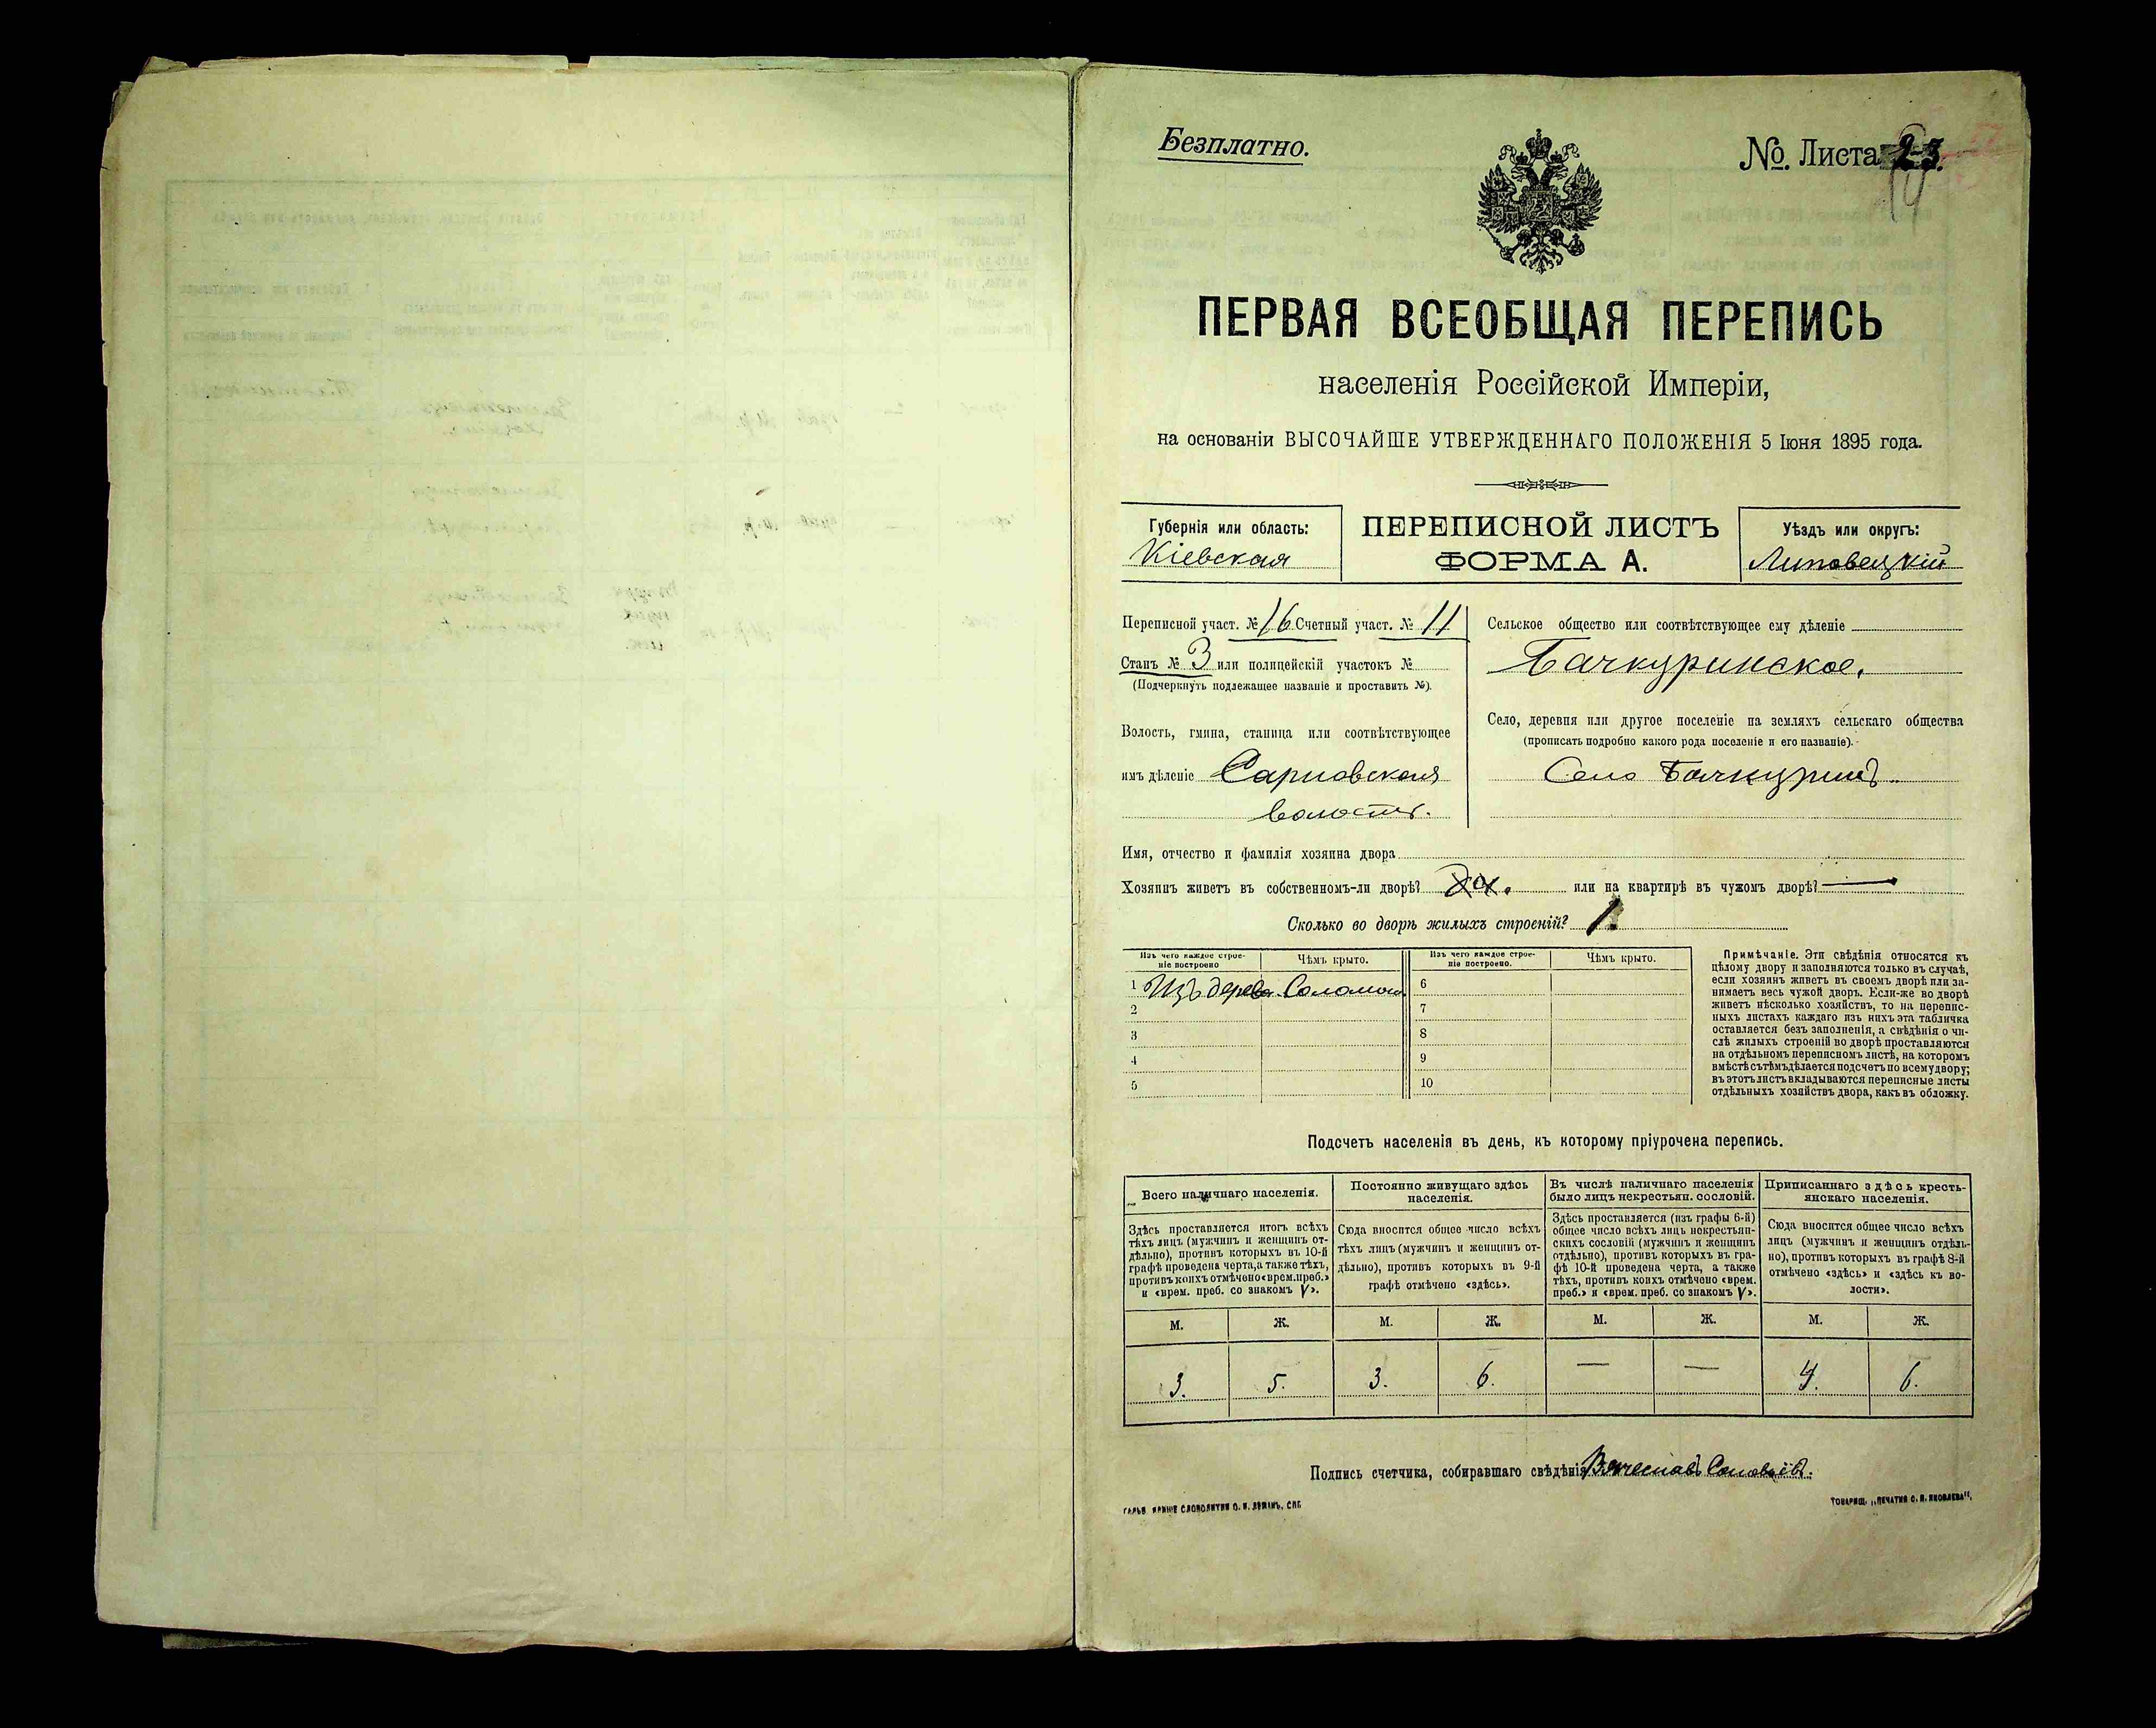 Безплатно.
№ Листа 23.
ПЕРВАЯ ВСЕОБЩАЯ ПЕРЕПИСЬ
населенія Россійской Имперіи,
на основаніи ВЫСОЧАЙШЕ УТВЕРЖДЕННАГО ПОЛОЖЕНІЯ 5 Іюня 1895 года.
Губернія или область:
Кіевская
ПЕРЕПИСНОЙ ЛИСТЪ
ФОРМА А.
Уѣздъ или округъ:
Липовецкій
Переписной участ. № 16 Счетный участ. № 11
Станъ № 3 или полицейскій участокъ №
(Подчеркнуть подлежащее названіе и проставить №).
Волость, гмина, станица или соотвѣтствующее
имъ дѣленіе Сарновская
волость.
Сельское общество или соотвѣтствующее ему дѣленіе
Бачкуринское.
Село, деревня или другое поселеніе на земляхъ сельскаго общества
(прописать подробно какого рода поселеніе и его названіе).
Село Бачкуринъ.
Имя, отчество и фамилія хозяина двора
Хозяинъ живетъ въ собственномъ-ли дворѣ? Да. или на квартирѣ въ чужомъ дворѣ? —
Сколько во дворѣ жилыхъ строеній? 1.
Изъ чего каждое строе-
ніе построено
Чѣмъ крыто.
Изъ чего каждое строе-
ніе построено.
Чѣмъ крыто.
1 Изъ дерева Соломою.
2
3
4
5
6
7
8
9
10
Примѣчаніе. Эти свѣдѣнія относятся къ
цѣлому двору и заполняются только въ случаѣ,
если хозяинъ живетъ въ своемъ дворѣ или за-
нимаетъ весь чужой дворъ. Если-же во дворѣ
живетъ нѣсколько хозяйствъ, то на перепис-
ныхъ листахъ каждаго изъ нихъ эта табличка
оставляется безъ заполненія, а свѣдѣнія о чи-
слѣ жилыхъ строеній во дворѣ проставляются
на отдѣльномъ переписномъ листѣ, на которомъ
вмѣстѣ съ тѣмъ дѣлается подсчетъ по всему двору;
въ этотъ листъ вкладываются переписные листы
отдѣльныхъ хозяйствъ двора, какъ въ обложку.
Подсчетъ населенія въ день, къ которому пріурочена перепись.
Всего наличнаго населенія.
Здѣсь проставляется итогъ всѣхъ
тѣхъ лицъ (мужчинъ и женщинъ от-
дѣльно), противъ которыхъ въ 10-й
графѣ проведена черта, а также тѣхъ,
противъ коихъ отмѣчено «врем. преб.»
и «врем. преб. со знакомъ V».
Постоянно живущаго здѣсь
населенія.
Сюда вносится общее число всѣхъ
тѣхъ лицъ (мужчинъ и женщинъ от-
дѣльно), противъ которыхъ въ 9-й
графѣ отмѣчено «здѣсь».
Въ числѣ наличнаго населенія
было лицъ некрестьян. сословій.
Здѣсь проставляется (изъ графы 6-й)
общее число всѣхъ лицъ некрестьян-
скихъ сословій (мужчинъ и женщинъ
отдѣльно), противъ которыхъ въ гра-
фѣ 10-й проведена черта, а также
тѣхъ, противъ коихъ отмѣчено «врем.
преб.» и «врем. преб. со знакомъ V».
Приписаннаго здѣсь кресть-
янскаго населенія.
Сюда вносится общее число всѣхъ
лицъ (мужчинъ и женщинъ отдѣль-
но), противъ которыхъ въ графѣ 8-й
отмѣчено «здѣсь» и «здѣсь къ во-
лости».
М. Ж. М. Ж. М. Ж. М. Ж.
3. 5. 3. 6. — — 4. 6.
Подпись счетчика, собиравшаго свѣдѣнія Вячеславъ Соловьёвъ.
ГАЛЬВ. КЛИШЕ СЛОВОЛИТНИ О. И. ЛЕМАНЪ, СПБ
ТОВАРИЩ. „ПЕЧАТНЯ С. П. ЯКОВЛЕВА".